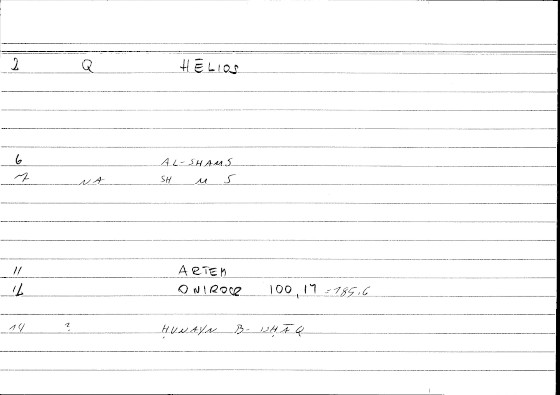 2 Q HĒLIOS
6 AL-SHAMS
7 NA SH M S
11 ARTEM
12 ONIROCR 100,17 = 185.6
14 ? ḤUNAYN B- ISḤĀQ